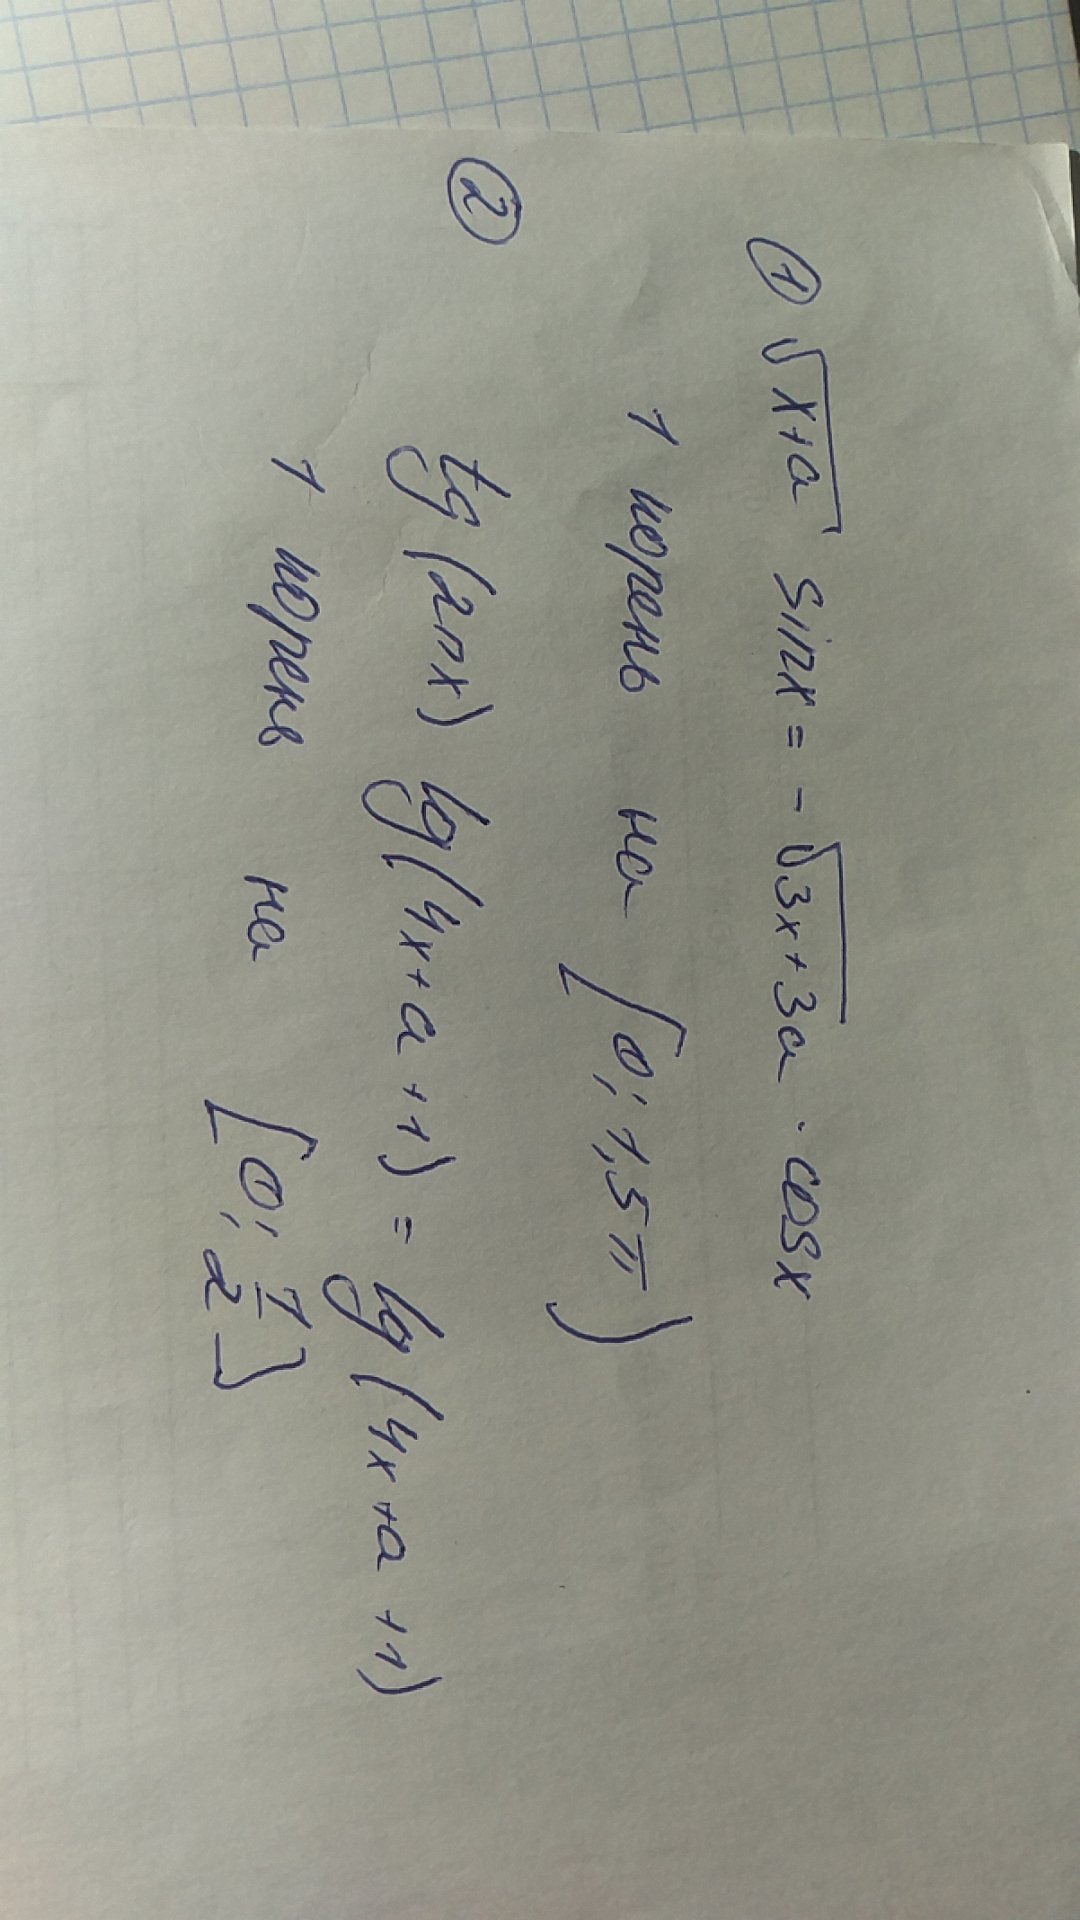 ① √(x+a) sinx = -√(3x+3a) · cosx
1 корень на [0; 1,5π)
② tg(2πx) lg(4x+a+1) = lg(4x+a+1)
1 корень на [0; 1/2]